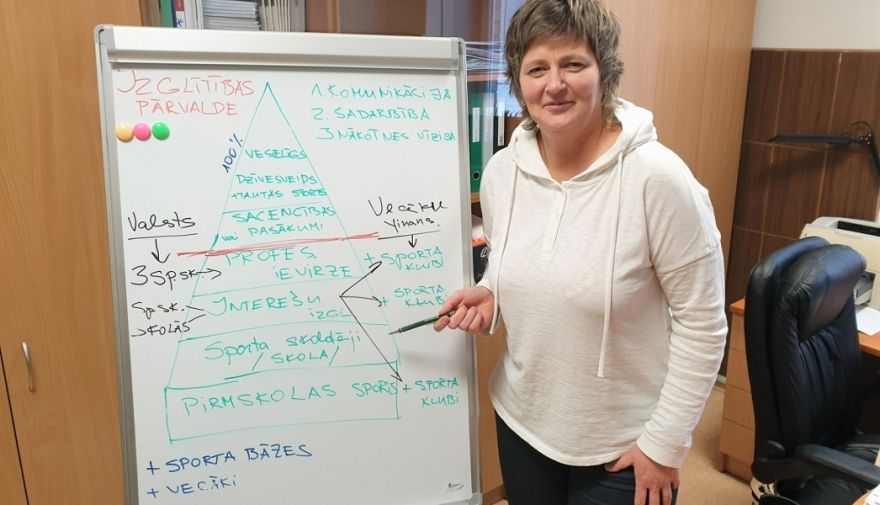 IZGLĪTĪBAS
PĀRVALDE
1. KOMUNIKĀCIJA
2. SADARBĪBA
3. NĀKOTNES VĪZIJA
100%
VESELĪGS
DZĪVESVEIDS
+TAUTAS SPORTS
SACENSĪBAS
vai PASĀKUMI
Valsts
Vecāku
finans.
PROFES.
IEVIRZE
3 SP.SK.
+ SPORTA
KLUBI
INTEREŠU
IZGL
Sp.sk.
SKOLĀS
+ SPORTA
KLUBI
Sporta skolotāji
/SKOLA/
PIRMSKOLAS SPORTS
+ SPORTA
KLUBI
+ SPORTA BĀZES
+ VECĀKI